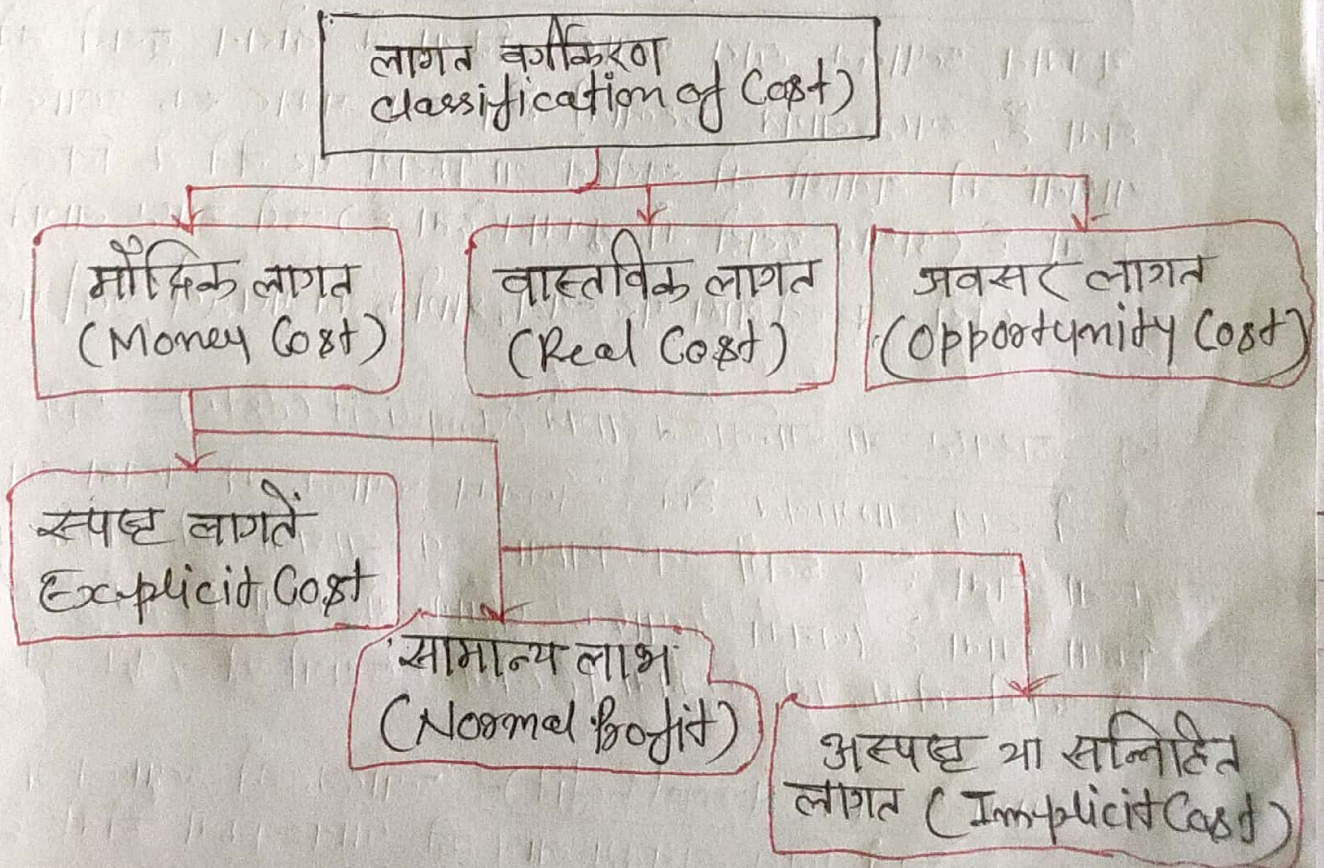 लागत वर्गीकरण
Classification of Cost)
मौद्रिक लागत
(Money Cost)
वास्तविक लागत
(Real Cost)
अवसर लागत
(Opportunity Cost)
स्पष्ट लागतें
Explicit Cost
सामान्य लाभ
(Normal Profit)
अस्पष्ट या सन्निहित
लागत (Implicit Cost)